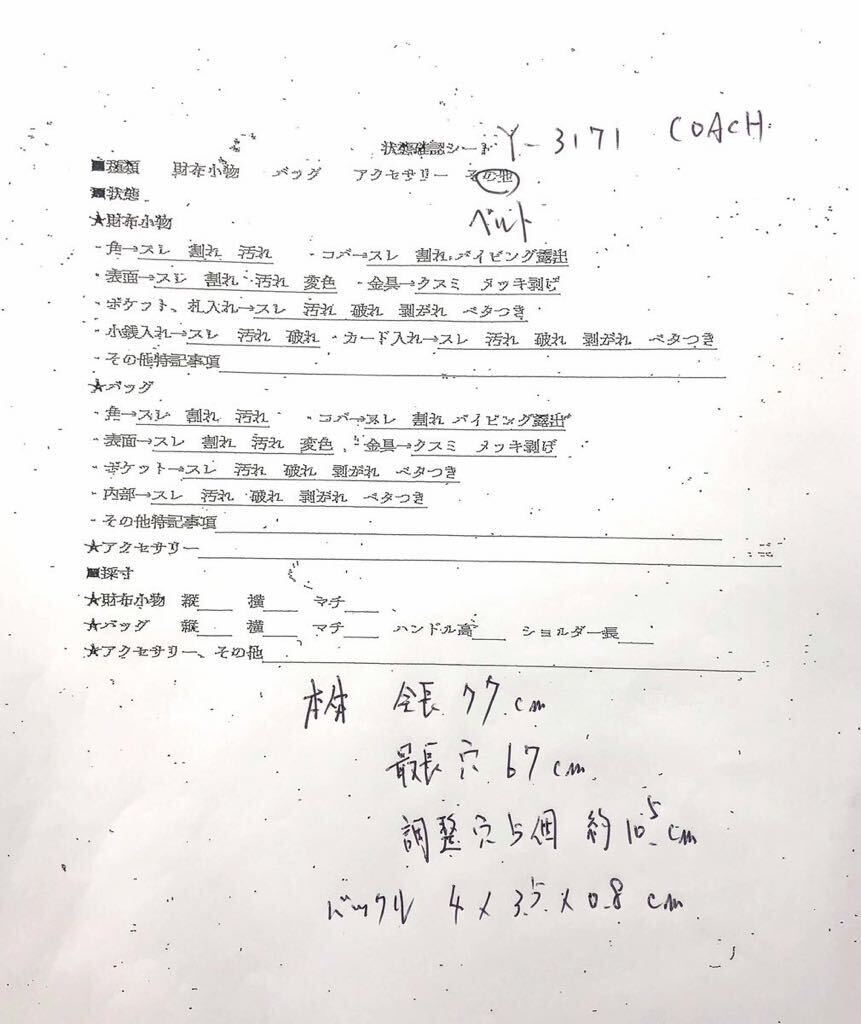 状態確認シート Y-3171 COACH
■種類 財布小物 バッグ アクセサリー その他
■状態 ベルト
★財布小物
・角→スレ 割れ 汚れ ・コバ→スレ 割れ パイピング露出
・表面→スレ 割れ 汚れ 変色 ・金具→クスミ メッキ剥げ
・ポケット、札入れ→スレ 汚れ 破れ 剥がれ ベタつき
・小銭入れ→スレ 汚れ 破れ ・カード入れ→スレ 汚れ 破れ 剥がれ ベタつき
・その他特記事項
★バッグ
・角→スレ 割れ 汚れ ・コバ→スレ 割れ パイピング露出
・表面→スレ 割れ 汚れ 変色 ・金具→クスミ メッキ剥げ
・ポケット→スレ 汚れ 破れ 剥がれ ベタつき
・内部→スレ 汚れ 破れ 剥がれ ベタつき
・その他特記事項
★アクセサリー
■採寸
★財布小物 縦 横 マチ
★バッグ 縦 横 マチ ハンドル高 ショルダー長
★アクセサリー、その他
本体 全長 77cm
最長穴 67cm
調整穴5個 約10.5cm
バックル 4×3.5×0.8cm